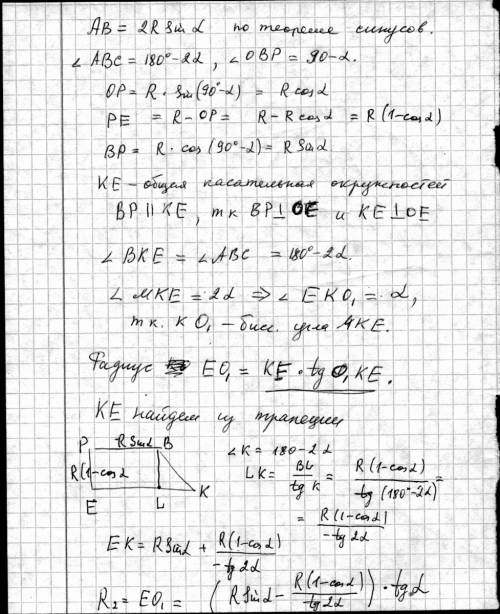 AB = 2R Sin α по теореме синусов.
∠ ABC = 180° - 2α, ∠ OBP = 90 - α.
OP = R · Sin(90° - α) = R cos α
PE = R - OP = R - R cos α = R(1 - cos α)
BP = R · cos(90° - α) = R Sin α
KE - общая касательная окружностей
BP || KE, тк BP ⊥ OE и KE ⊥ OE
∠ BKE = ∠ ABC = 180° - 2α.
∠ MKE = 2α ⇒ ∠ EKO₁ = α,
т.к. KO₁ - бис. угла MKE.
Радиус EO₁ = KE · tg O₁KE.
KE найдем из трапеции
P R Sin α B
R(1 - cos α
E L K
∠K = 180 - 2α
LK = BL / tg K = R(1 - cos α) / tg(180° - 2α) =
= R(1 - cos α) / -tg 2α
EK = R Sin α + R(1 - cos α) / -tg 2α
R₂ = EO₁ = (R Sin α - R(1 - cos α) / tg 2α) · tg α